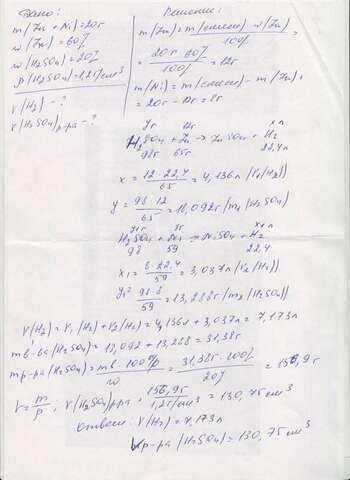 Дано:
m(Zn + Ni) = 20г
w(Zn) = 60%
w(H2SO4) = 20%
ρ(H2SO4) = 1,2г/см³
V(H2) - ?
V(H2SO4)р-ра - ?
Решение:
m(Zn) = m(смеси) · w(Zn) / 100% =
= 20г · 60% / 100% = 12г
m(Ni) = m(смеси) - m(Zn) =
= 20г - 12г = 8г
yг 12г xл
H2SO4 + Zn → ZnSO4 + H2
98г 65г 22,4л
x = 12 · 22,4 / 65 = 4,136л (V1(H2))
y = 98 · 12 / 65 = 18,092г (m1(H2SO4))
y1г 8г x1л
H2SO4 + Ni → NiSO4 + H2
98 59 22,4
x1 = 8 · 22,4 / 59 = 3,037л (V2(H2))
y1 = 98 · 8 / 59 = 13,288г (m2(H2SO4))
V(H2) = V1(H2) + V2(H2) = 4,136л + 3,037л = 7,173л
m в-ва (H2SO4) = 18,092 + 13,288 = 31,38г
m р-ра (H2SO4) = mв · 100% / w = 31,38г · 100% / 20% = 156,9г
V = m / ρ; V(H2SO4)р-ра = 156,9г / 1,2г/см³ = 130,75см³
Ответ: V(H2) = 7,173л
Vр-ра (H2SO4) = 130,75см³